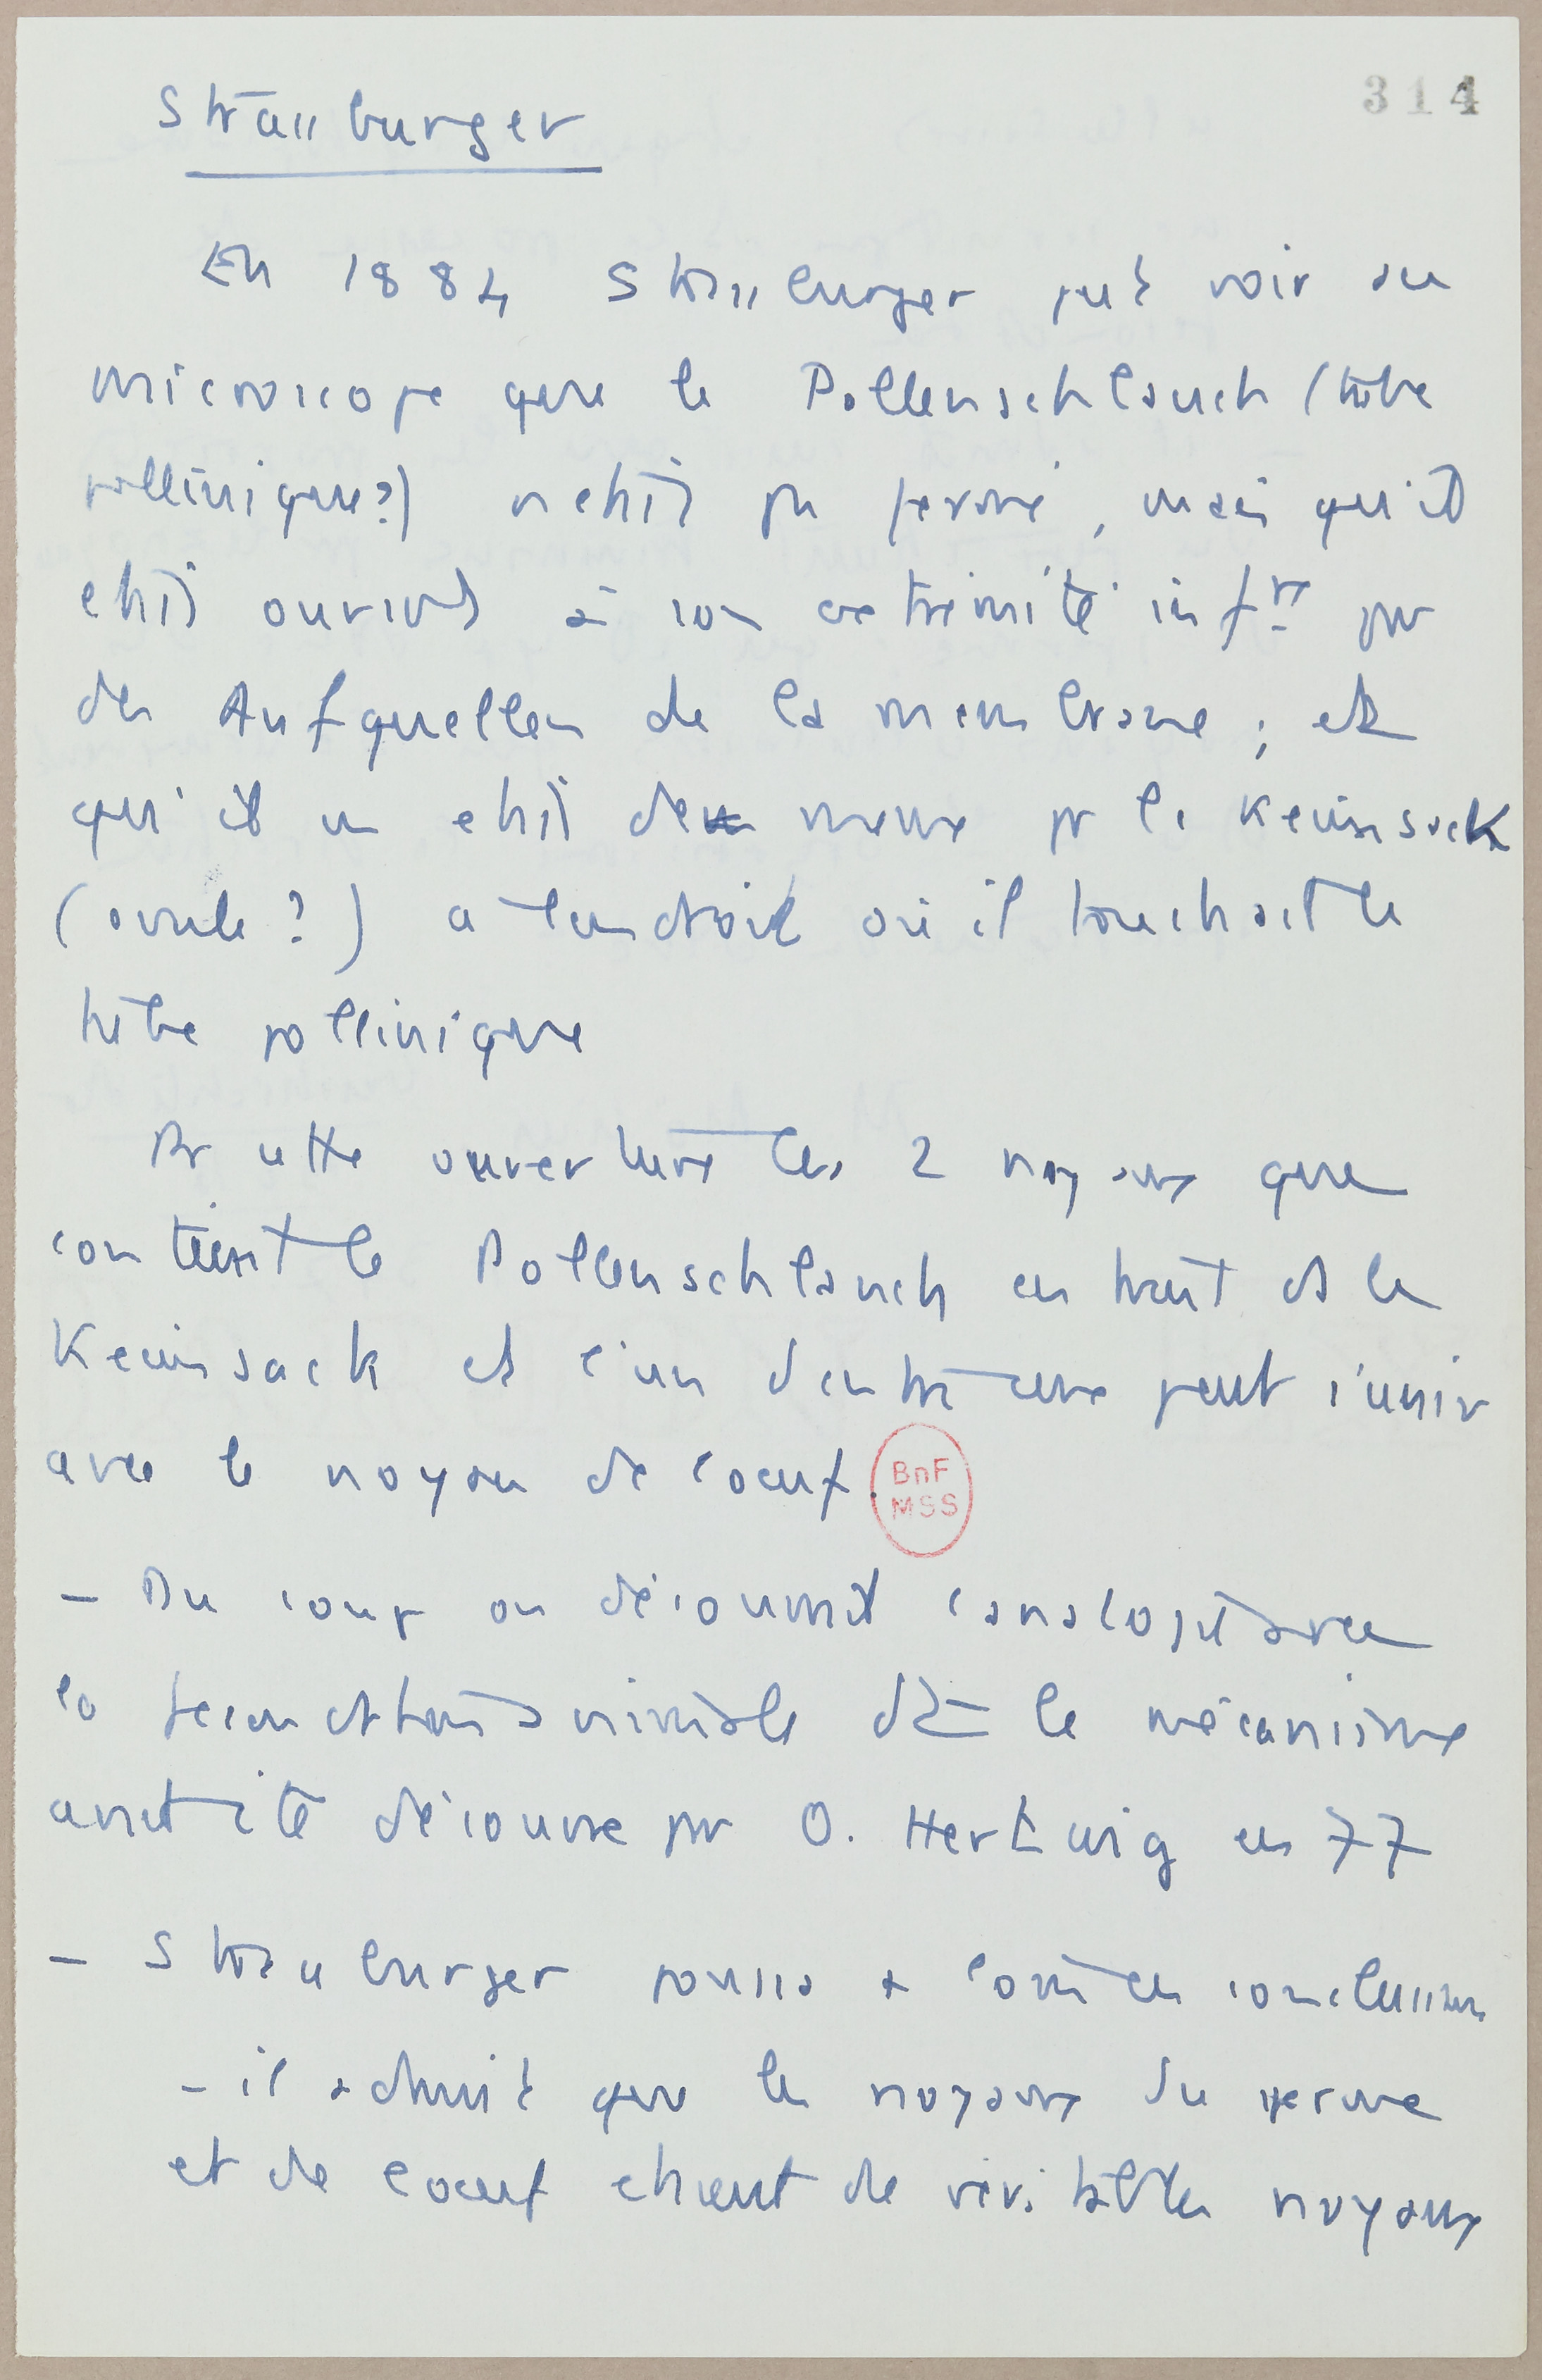 314
Strassburger
En 1884 Strassburger put voir au
microscope que le Pollenschlauch (tube
pollinique?) n'était pas fermé, mais qu'il
était ouvert à son extrémité infre par
des Aufquellen de la membrane ; et
qu'il en était de même pr le Keimsack
(ovule ?) a l'endroit où il touchait le
tube pollinique
Par cette ouverture les 2 noyaux que
contient le Pollenschlauch entrent ds le
Keimsack et l'un d'entre eux peut s'unir
avec le noyau de l'oeuf.
BnF
MSS
- Du coup on découvrit l'analogie avec
la fécondation animale dt le mécanisme
avait été découvert par O. Hertwig en 77
- Strassburger poussa + loin les conclusions
- il admit que les noyaux du sperme
et de l'oeuf étaient de véritables noyaux